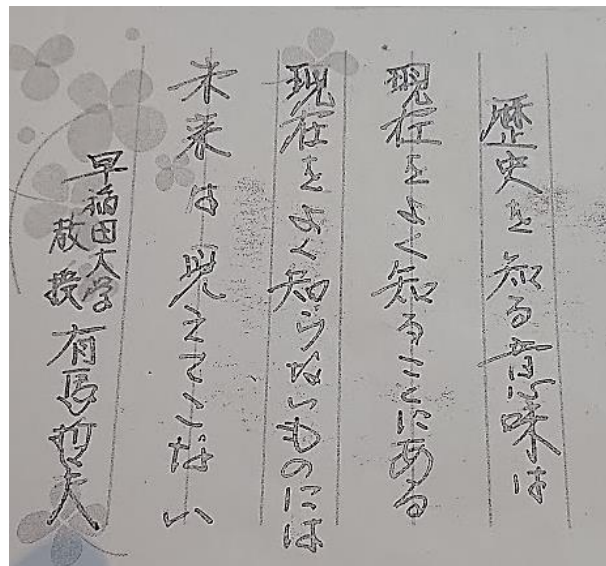 歴史を知る意味は
現在をよく知ることにある
現在をよく知らないものには
未来は見えてこない
早稲田大学
教授 有馬哲夫